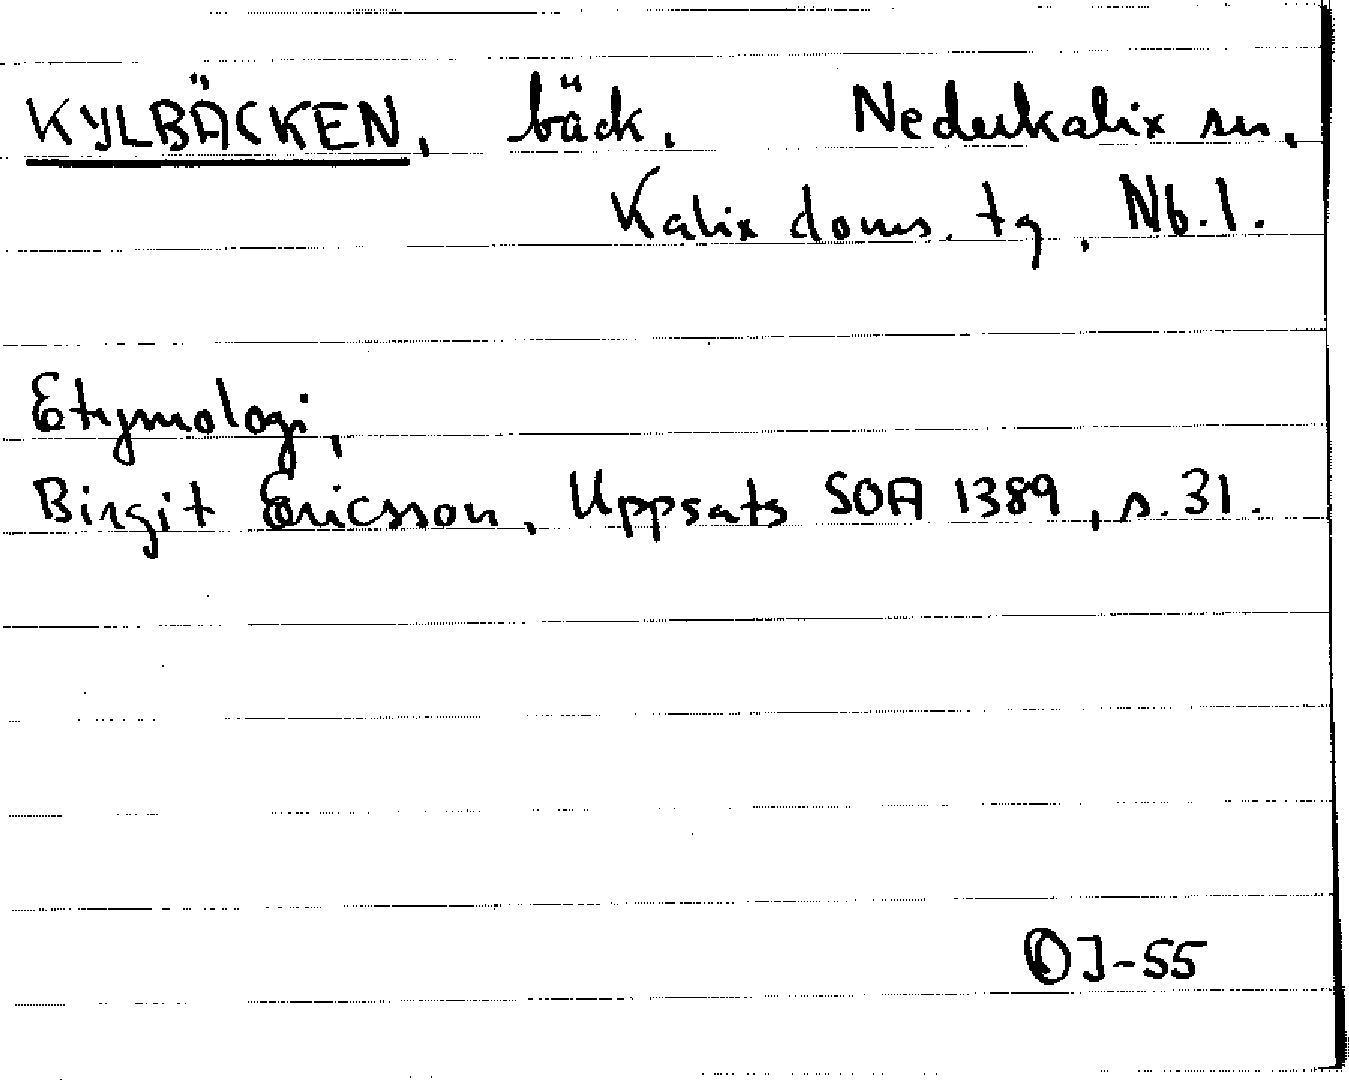 KYLBÄCKEN, bäck. Nederkalix sn.
Kalix doms. tg, Nb. l.
Etymologi,
Birgit Ericsson, Uppsats SOA 1389, s. 31.
OJ-55